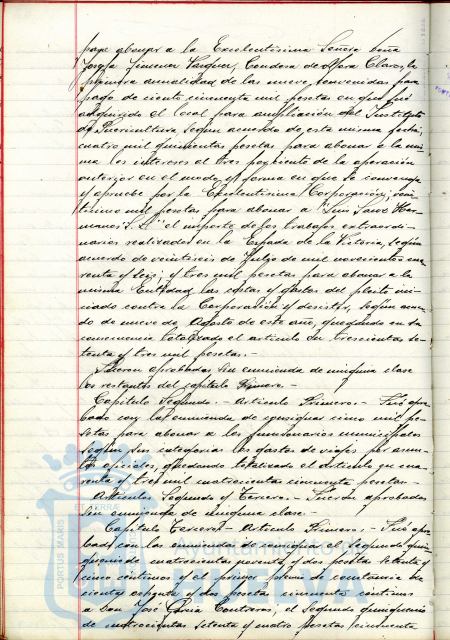 para abonar a la Excelentísima Señora Doña
Josefa Jimenez Vazquez, Condesa de Mora Claros, la
primera anualidad de las nueve convenidas para
pago de ciento cincuenta mil pesetas en que fué
adquirido el local para ampliación del Instituto
de Puericultura, segun acuerdo de esta misma fecha;
cuatro mil quinientas pesetas para abonar a la mis-
ma los intereses al tres por ciento de la operación
anterior en el modo y forma en que se convenga
y apruebe por la Excelentísima Corporación; vein-
ticinco mil pesetas para abonar a "Luis Saur Her-
manos S.L." el importe de los trabajos extraordi-
narios realizados en la Espada de la Victoria, segun
acuerdo de veintiseis de Julio de mil novecientos cua-
renta y seis; y tres mil pesetas para abonar a la
misma Entidad las costas y gastos del pleito ini-
ciado contra la Corporación y desistir, segun acuer-
do de nueve de Agosto de este año, quedando en su
consecuencia totalizado el artículo en trescientas se-
tenta y tres mil pesetas.-
Fueron aprobados sin enmienda de ninguna clase
los restantes del capítulo Primero.-
Capítulo Segundo.- Artículo Primero.- Fué apro-
bado con la enmienda de consignar cinco mil pe-
setas para abonar a los funcionarios municipales
segun su categoria los gastos de viajes por asun-
tos oficiales, quedando totalizado el artículo en cua-
renta y tres mil cuatrocientas cincuenta pesetas.-
Artículos Segundo y Tercero.- Fueron aprobados
sin enmienda de ninguna clase.-
Capítulo Tercero.- Artículo Primero.- Fué apro-
bado con las enmiendas de consignar el segundo quin-
quenio de cuatrocientas noventa y dos pesetas setenta y
cinco centimos y el primer plus de constancia de
cientos cincuenta y dos pesetas cincuenta centimos
a Don José Garcia Contreras; el segundo quinquenio
de cuatrocientas setenta y cuatro pesetas cincuenta
PORTUS MARIS
ET TERRAE
Ayuntamiento de
HUELVA